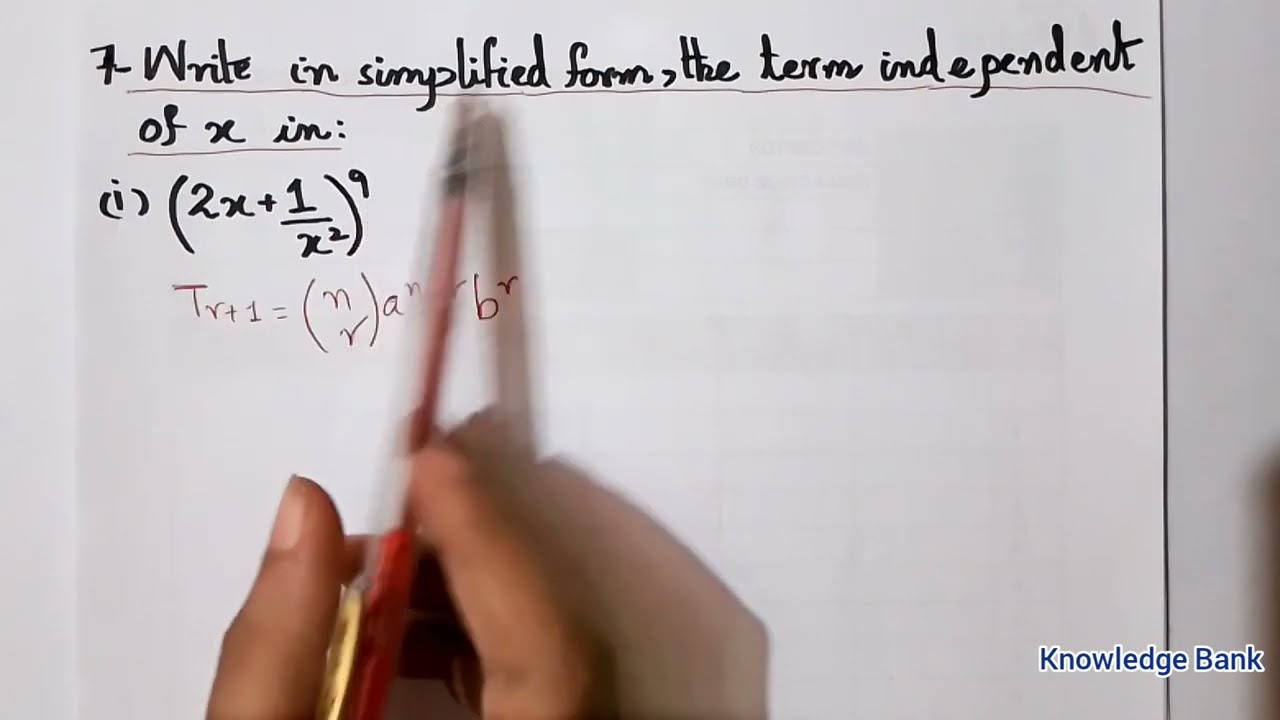 7- Write in simplified form, the term independent
of x in:
(i) (2x+1/x²)⁹
Tr+1 = (n r) aⁿ r bʳ
Knowledge Bank